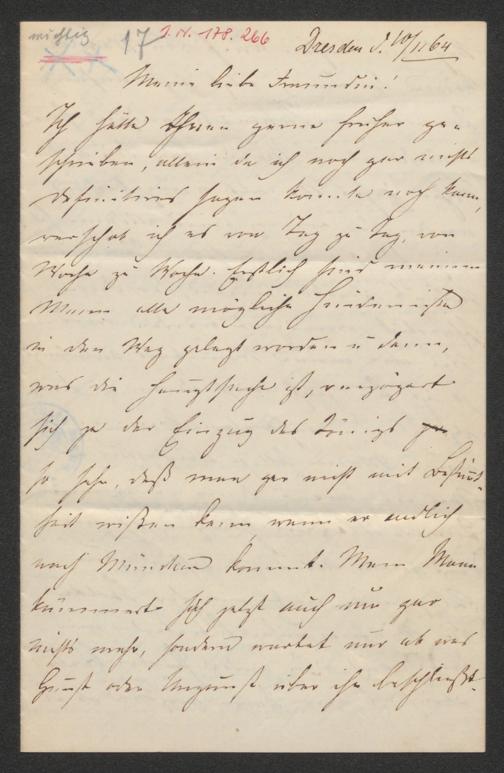 wichtig
17 I.N. 178.266
Dresden d. 10/11 64
Meine liebe Freundin!
Ich hätte Ihnen gerne früher ge-
schrieben, allein da ich noch gar nichts
definitives sagen konnte noch kann,
verschob ich es von Tag zu Tag, von
Woche zu Woche. Erstlich sind meinem
Mann alle mögliche Hindernisse
in den Weg gelegt worden u dann,
was die Hauptsache ist, verzögert
sich ja der Einzug des Königs
so sehr, daß man gar nicht mit Bestimt-
heit wissen kann wann er endlich
nach München kommt. Mein Mann
kümmert sich jetzt auch um gar
nichts mehr, sondern wartet nur ab was
Gunst oder Ungunst über ihn beschließt.